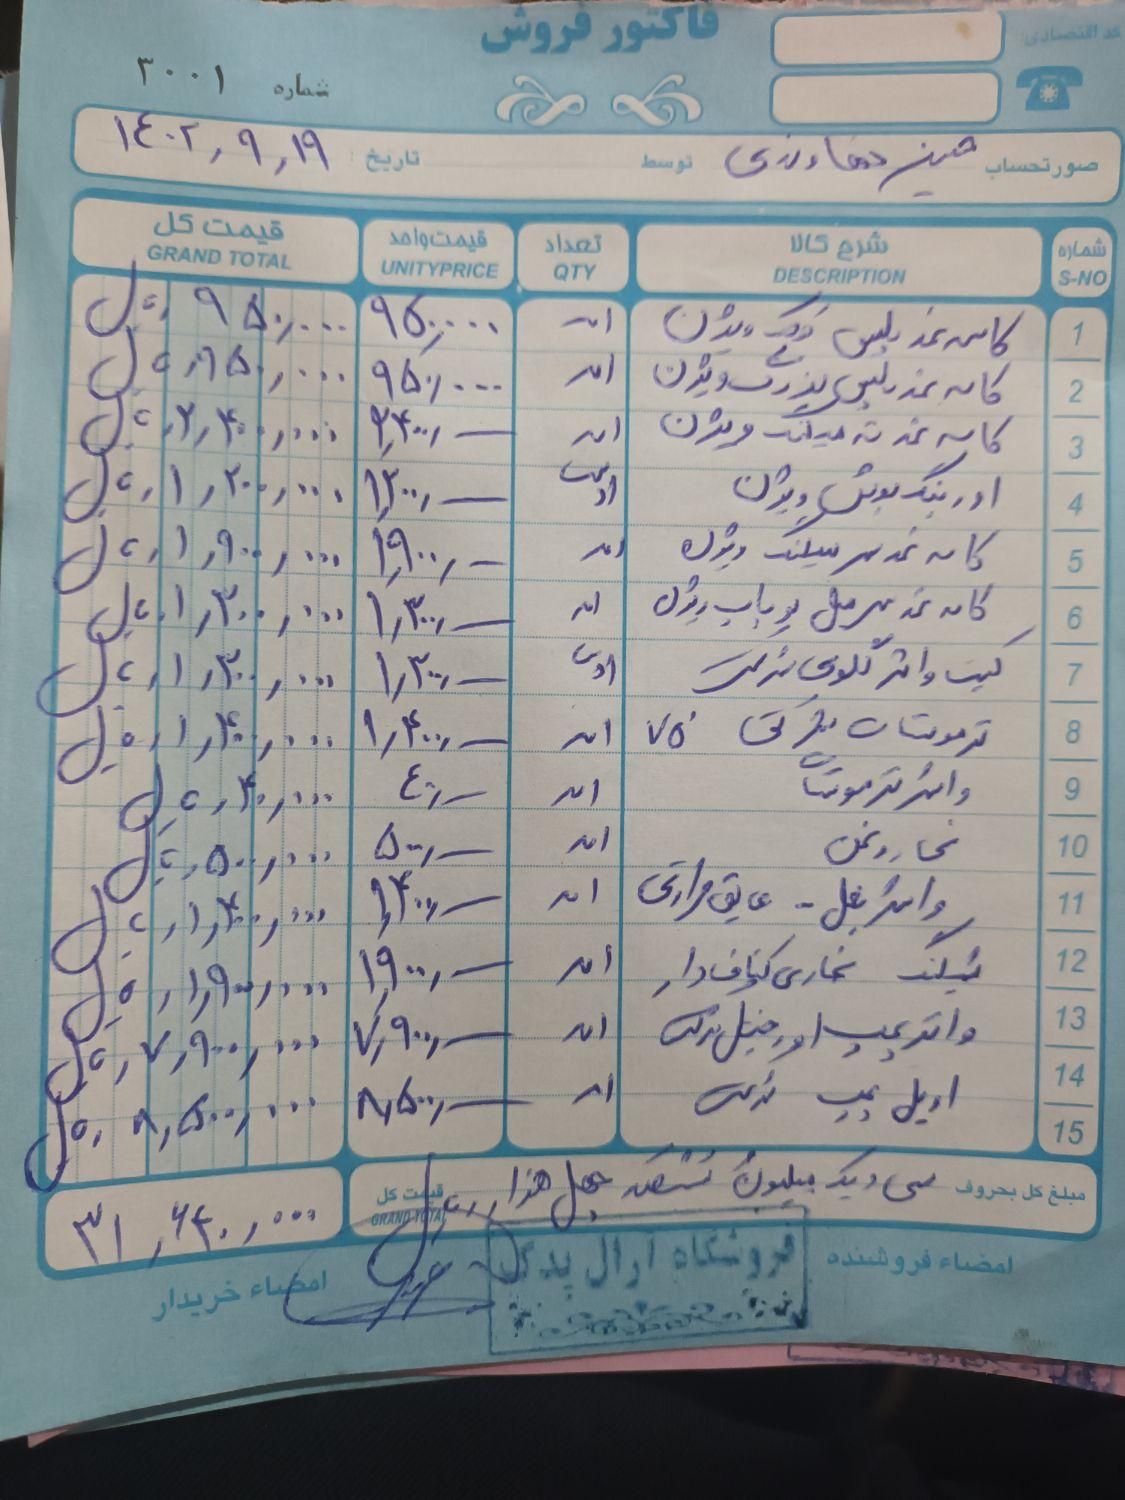 فاکتور فروش
کد اقتصادی:
شماره ۳۰۰۱
صورتحساب حسین توسط تاریخ: ۱۴۰۲,۹,۱۹
شماره S-NO شرح کالا DESCRIPTION تعداد QTY قیمت واحد UNITYPRICE قیمت کل GRAND TOTAL
1 کاسه نمد پلیس کوچک ویژن ۱عدد ۹۵۰,۰۰۰ ۹۵۰,۰۰۰ ریال
2 کاسه نمد پلیس بزرگ ویژن ۱عدد ۹۵۰,۰۰۰ ۹۵۰,۰۰۰ ریال
3 کاسه نمد ته میلنگ ویژن ۱عدد ۲,۴۰۰,— ۲,۴۰۰,۰۰۰ ریال
4 اورینگ بوش ویژن ۱دست ۱,۲۰۰,— ۱,۲۰۰,۰۰۰ ریال
5 کاسه نمد سر میلنگ ویژن ۱عدد ۱,۹۰۰,— ۱,۹۰۰,۰۰۰ ریال
6 کاسه نمد سرمیل سوپاپ ویژن ۱عدد ۱,۳۰۰,— ۱,۳۰۰,۰۰۰ ریال
7 کیت واشر گلویی شرکت ۱دست ۱,۳۰۰,— ۱,۳۰۰,۰۰۰ ریال
8 ترموستات شرکتی ۷۵ ۱عدد ۱,۴۰۰,— ۱,۴۰۰,۰۰۰ ریال
9 واشر ترموستات ۱عدد ۴۰,— ۴۰,۰۰۰ ریال
10 ۱عدد ۵۰۰,— ۵۰۰,۰۰۰ ریال
11 واشر بغل - عایق حرارتی ۱عدد ۱,۴۰۰,— ۱,۴۰۰,۰۰۰ ریال
12 شیلنگ بخاری ۱عدد ۱,۹۰۰,— ۱,۹۰۰,۰۰۰ ریال
13 واترپمپ اورجینال شرکت ۱عدد ۷,۹۰۰,— ۷,۹۰۰,۰۰۰ ریال
14 اویل پمپ شرکت ۱عدد ۸,۵۰۰,— ۸,۵۰۰,۰۰۰ ریال
15
مبلغ کل بحروف سی و یک میلیون ششصد چهل هزار ریال قیمت کل GRAND TOTAL ۳۱,۶۴۰,۰۰۰
امضاء فروشنده فروشگاه آرال یدک امضاء خریدار